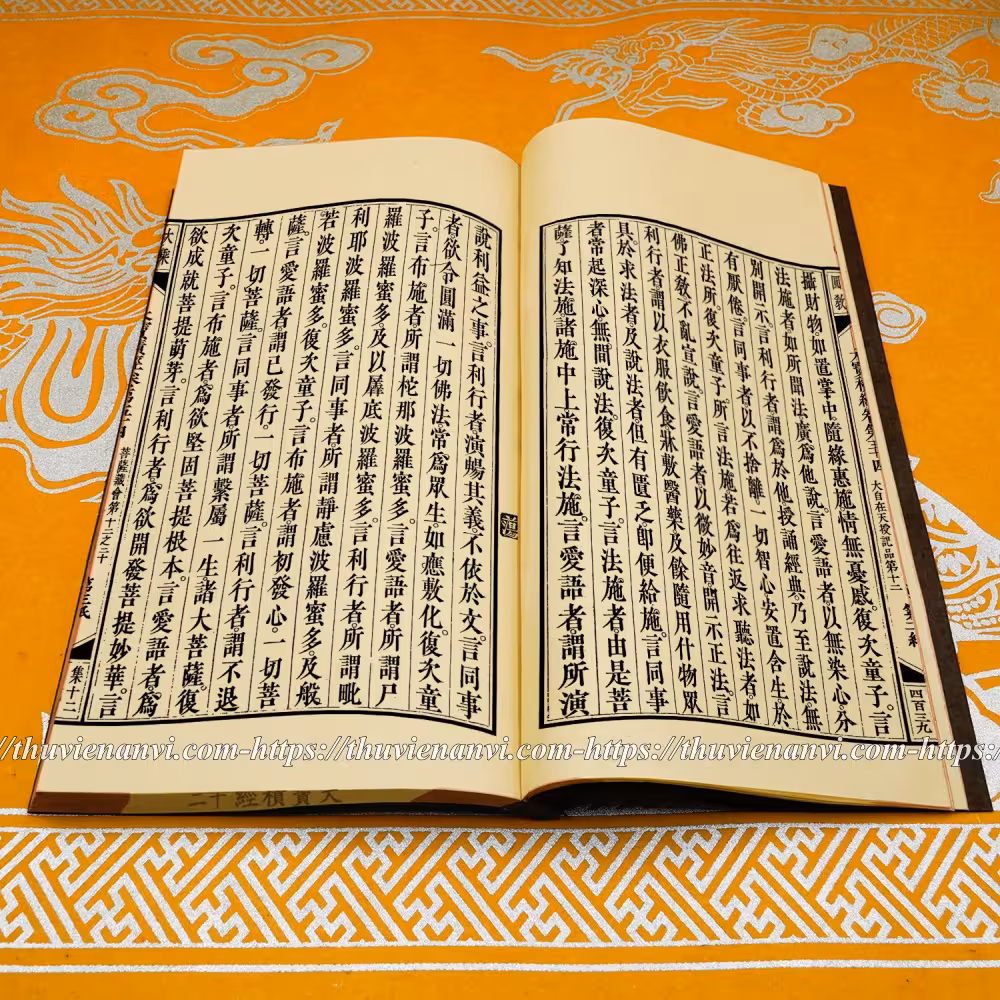 圓教
大自在天授記品第十二
四百三九
攝財物如置掌中隨緣惠施情無憂慼。復次童子。言
法施者。如所聞法廣爲他說。言愛語者。以無染心分
別開示。言利行者。謂爲於他授誦經典乃至說法無
有厭倦。言同事者。以不捨離一切智心安置含生於
正法所。復次童子。所言法施。若爲往返求聽法者。如
佛正教不亂宣說。言愛語者。以微妙音開示正法。言
利行者。謂以衣服飲食牀敷醫藥及餘隨用什物眾
具。於求法者。及說法者。但有匱乏即便給施。言同事
者。常起深心無間說法。復次童子。言法施者。由是菩
薩了知法施諸施中上常行法施。言愛語者。謂所演
說利益之事。言利行者。演暢其義。不依於文。言同事
者。欲令圓滿一切佛法常爲眾生。如應敷化。復次童
子。言布施者。所謂柁那波羅蜜多。言愛語者。所謂尸
羅波羅蜜多。及以羼底波羅蜜多。言利行者。所謂毗
利耶波羅蜜多。言同事者。所謂靜慮波羅蜜多。及般
若波羅蜜多。復次童子。言布施者。謂初發心。一切菩
薩。言愛語者。謂已發行。一切菩薩。言利行者。謂不退
轉。一切菩薩。言同事者。所謂繫屬一生諸大菩薩。復
次童子。言布施者。爲欲堅固菩提根本。言愛語者。爲
欲成就菩提萌芽。言利行者。爲欲開發菩提妙華。言
菩薩藏會第十二之二十
集十二
大寶積經十二
https://thuvienanvi.com-https://thuvienanvi.com-https://thuvienanvi.com-https:/